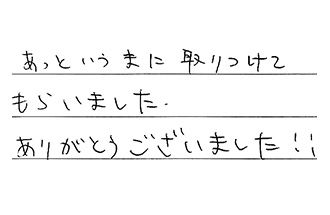 あっというまに 取りつけて
もらいました.
ありがとうございました!!